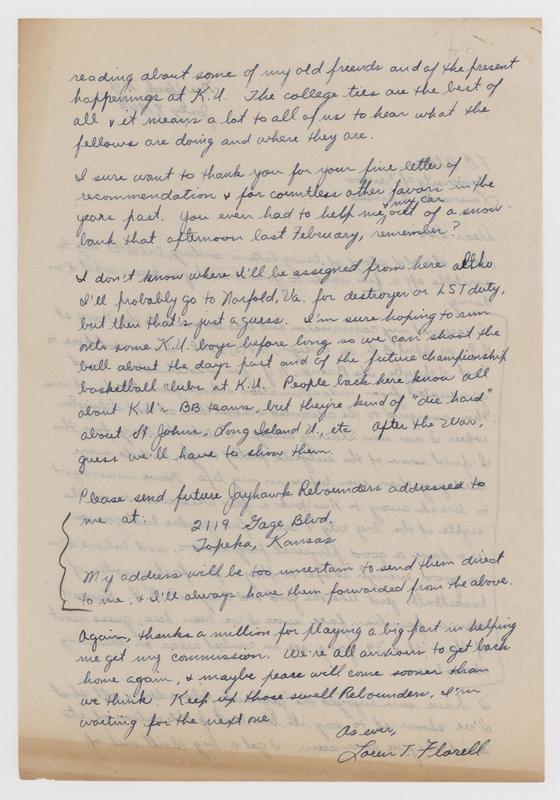 reading about some of my old friends and of the present
happenings at K.U. The college ties are the best of
all & it means a lot to all of us to hear what the
fellows are doing and where they are.
I sure want to thank you for your fine letter of
recommendation & for countless other favors in the
years past. You even had to help me & my car out of a snow-
bank that afternoon last February, remember?
I don't know where I'll be assigned from here altho
I'll probably go to Norfold, Va. for destroyer or LST duty,
but then that's just a guess. I'm sure hoping to run
onto some K.U. boys before long so we can shoot the
bull about the days past and of the future championship
basketball clubs at K.U. People back here know all
about K.U.'s BB teams, but they're kind of "die hard"
about St. Johns, Long Island U, etc. After the War,
guess we'll have to show them.
Please send future Jayhawk Rebounders addressed to
me at: 2119 Gage Blvd.
Topeka, Kansas
My address will be too uncertain to send them direct
to me, & I'll always have them forwarded from the above.
Again, thanks a million for playing a big part in helping
me get my commission. We're all anxious to get back
home again, & maybe peace will come sooner than
we think. Keep up those swell Rebounders, I'm
waiting for the next one.
As ever,
Loren T. Florell